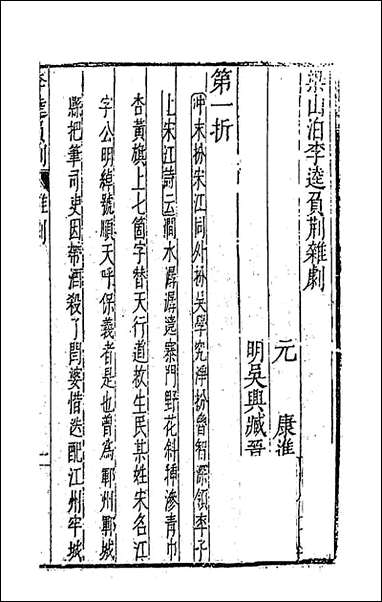 梁山泊李逵負荆雜劇
元　康進
明吳興臧晉
第一折
冲末扮宋江同外扮吳學究淨扮魯智深領卒子
上宋江詩云澗水潺潺遶寨門野花斜揷滲靑巾
杏黃旗上七箇字替天行道救生民某姓宋名江
字公明綽號順天呼保義者是也曾爲鄆州鄆城
縣把筆司吏因帶酒殺了閻婆惜迭配江州牢城
李逵負荆　雜劇　一